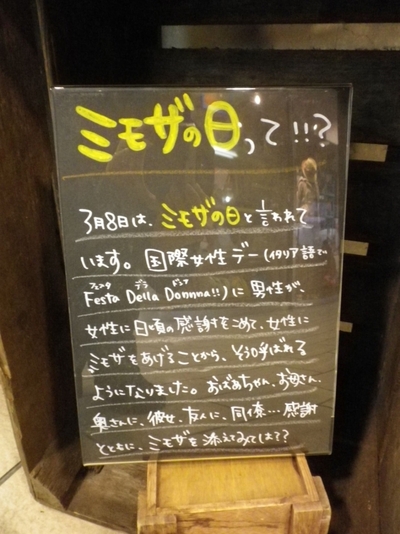 ミモザの日って!!?
3月8日は、ミモザの日と言われて
います。国際女性デー(イタリア語で
フェスタ デラ ドンナ
Festa Della Donnna!!)に男性が、
女性に日頃の感謝をこめて、女性に
ミモザをあげることから、そう呼ばれる
ようになりました。おばあちゃん、お母さん、
奥さんに、彼女、友人に、同僚…感謝
とともに、ミモザを添えてみては?